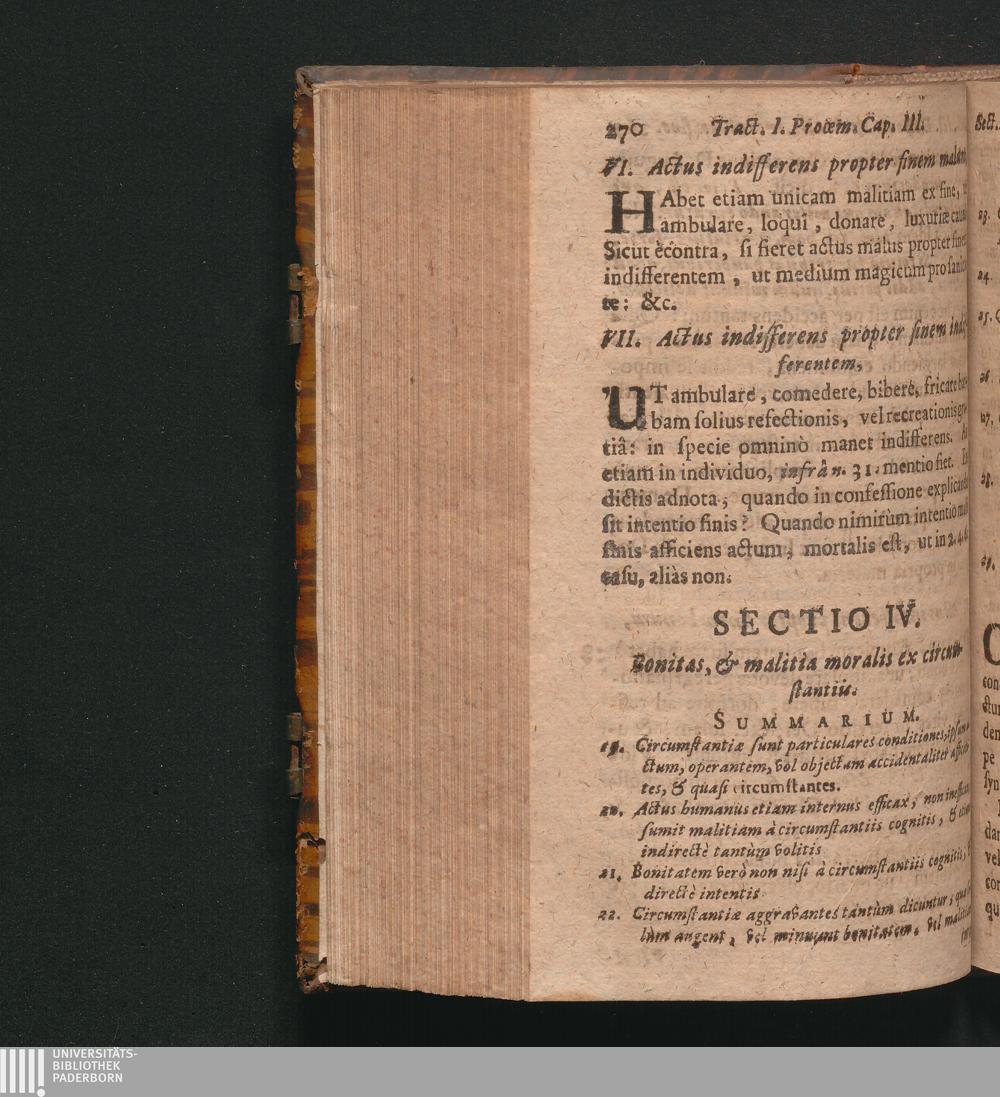 270 Tract. I. Proœm. Cap. III.
VI. Actus indifferens propter finem malum,
HAbet etiam unicam malitiam ex fine,
ambulare, loqui, donare, luxuriæ causâ
Sicut ècontra, si fieret actus malus propter finem
indifferentem, ut medium magicum pro sanita
te: &c.
VII. Actus indifferens propter finem indif
ferentem,
UT ambulare, comedere, bibere, fricare bar
bam solius refectionis, vel recreationis gra
tiâ: in specie omninò manet indifferens. An
etiam in individuo, infrà n. 31. mentio fiet. In
dictis adnota, quando in confessione explicanda
sit intentio finis? Quando nimirùm intentio mali
finis afficiens actum, mortalis est, ut in 2. 4. 6.
casu, aliàs non.
SECTIO IV.
Bonitas, & malitia moralis ex circum-
stantiis.
SUMMARIUM.
19. Circumstantiæ sunt particulares conditiones, ipsum a
ctum, operantem, vel objectum accidentaliter afficien
tes, & quasi circumstantes.
20. Actus humanus etiam internus efficax, non inefficax
sumit malitiam à circumstantiis cognitis, & etiam
indirectè tantùm volitis
21. Bonitatem verò non nisi à circumstantiis cognitis,
directè intentis
22. Circumstantiæ aggravantes tantùm dicuntur, quæ
lùm augent, vel minuunt bonitatem, vel malitiam
Sect.
23.
24.
25.
26.
27.
28.
29.
con
ctum
den
pe
syn
dan
vel
con
qu
UNIVERSITÄTS-
BIBLIOTHEK
PADERBORN